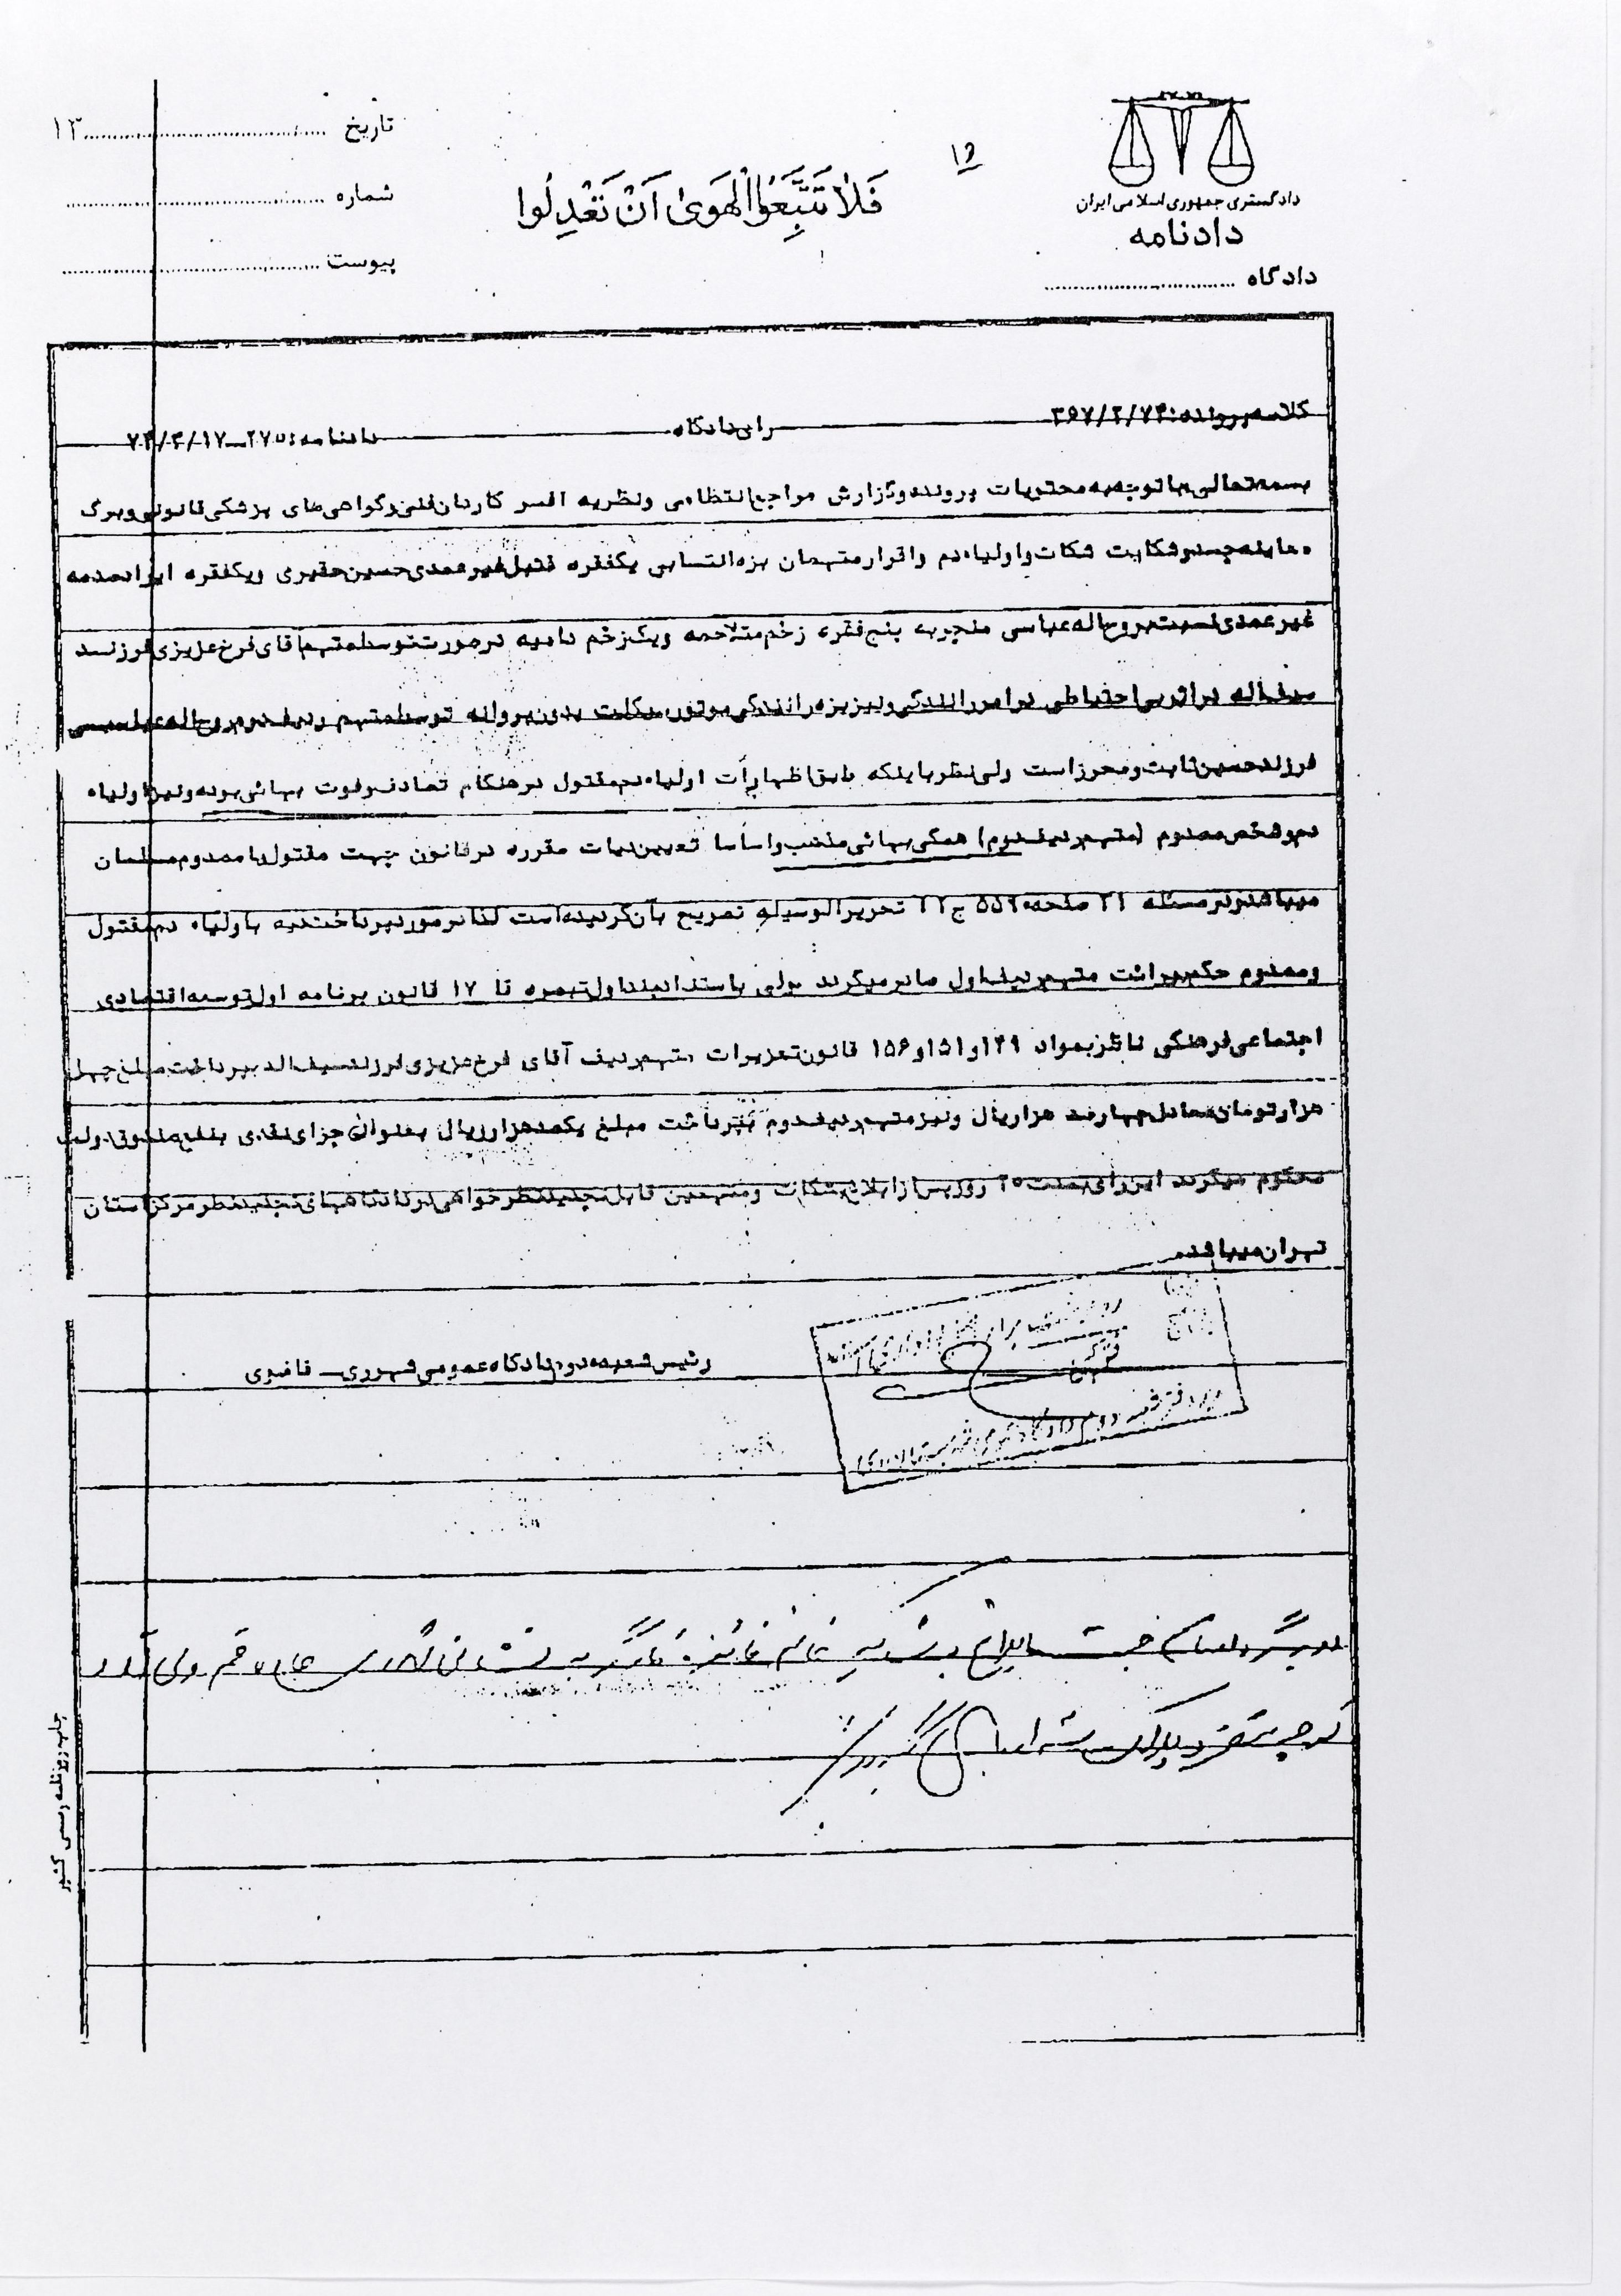 تاریخ .......... ۱۳
شماره ..........
پیوست ..........
۱۵
فَلَا تَتَّبِعُوا الْهَوىٰ اَنْ تَعْدِلُوا
دادگستری جمهوری اسلامی ایران
دادنامه
دادگاه ..........
کلاسه پرونده: ۳۶۷/۲/۷۴ رای دادگاه دادنامه: ۲۷۵-۷۴/۳/۱۷
بسمه تعالی با توجه به محتویات پرونده و گزارش مراجع انتظامی و نظریه افسر کاردان فنی و گواهی های پزشکی قانونی و برگ
معاینه جسد و شکایت شکات و اولیاء دم و اقرار متهمان بزه انتسابی یکفقره قتل غیر عمدی حسین حقیری و یکفقره ایراد صدمه
غیر عمدی نسبت بروح اله عباسی منجر به پنج فقره زخم متلاحمه و یک زخم دامیه در صورت توسط متهم اقای فرخ عزیزی فرزند
سیف اله در اثر بی احتیاطی در امر رانندگی و نیز بزه رانندگی موتور سیکلت بدون پروانه توسط متهم ردیف دوم روح اله عباسی
فرزند حسین ثابت و محرز است ولی نظر باینکه طبق اظهارات اولیاء دم مقتول در هنگام تصادف و فوت بهائی بوده و نیز اولیاء
دم و شخص مصدوم (متهم ردیف دوم) همگی بهائی مذهب و اساسا تعیین دیات مقرره در قانون جهت مقتول یا مصدوم مسلمان
میباشد و در مسئله ۲۱ صفحه ۵۵۹ ج ۲ تحریرالوسیله تصریح بآن گردیده است لذا در مورد پرداخت دیه باولیاء دم مقتول
و مصدوم حکم برائت متهم ردیف اول صادر میگردد ولی باستناد بند اول تبصره ۱۷ قانون برنامه اول توسعه اقتصادی
اجتماعی فرهنگی ناظر بمواد ۱۴۹ و ۱۵۱ و ۱۵۶ قانون تعزیرات متهم ردیف آقای فرخ عزیزی فرزند سیف اله بپرداخت مبلغ چهل
هزار تومان معادل چهارصد هزار ریال و نیز متهم ردیف دوم بپرداخت مبلغ یکصد هزار ریال بعنوان جزای نقدی بنفع صندوق دولت
محکوم میگردد این رای بمدت ۲۰ روز پس از ابلاغ بشکات و متهمین قابل تجدیدنظر خواهی در دادگاههای تجدیدنظر مرکز استان
تهران میباشد.
رئیس شعبه دوم دادگاه عمومی شهرری - قاضوی
چاپ روزنامه رسمی کشور